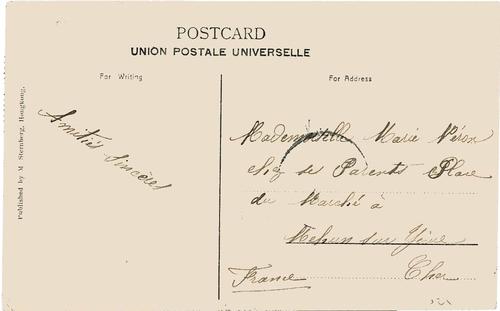 POSTCARD
UNION POSTALE UNIVERSELLE
For Writing
For Address
Published by M. Sternberg, Hongkong,
Amitiés Sincères
Mademoiselle Marie Véron
chez ses Parents Place
du Marché à
Mehun sur Yèvre
Cher
France